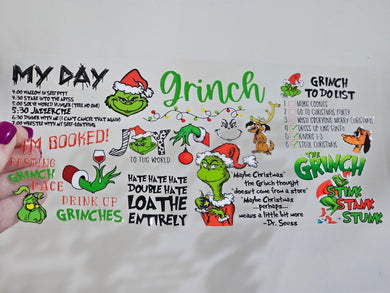 MY DAY
4:00 WALLOW IN SELF PITY
4:30 STARE INTO THE ABYSS
5:00 SOLVE WORLD HUNGER (TELL NO ONE)
5:30 JAZZERCISE
6:30 DINNER WITH ME (I CAN'T CANCEL THAT AGAIN)
7:00 WRESTLE WITH MY SELF-LOATHING
I'M BOOKED!
Grinch
GRINCH
TO DO LIST
1 MAKE COOKIES
2 GO TO CHRISTMAS PARTY
3 WISH EVERYONE MERRY CHRISTMAS
4 DRESS UP LIKE SANTA
5 KNOWN 1-3
6 STEAL CHRISTMAS
JOY
TO THE WORLD
RESTING
GRINCH
FACE
DRINK UP
GRINCHES
HATE HATE HATE
DOUBLE HATE
LOATHE
ENTIRELY
"Maybe Christmas"
the Grinch thought
"doesn't come from a store"
"Maybe Christmas
...perhaps...
means a little bit more
-Dr. Seuss
THE
GRINCH
STINK
STANK
STUNK